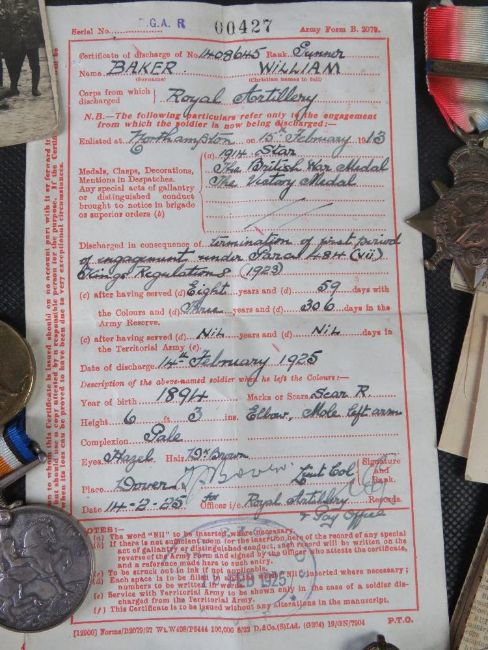 Serial No. R.G.A. R 00427 Army Form B. 2079.
Certificate of discharge of No. 1408645 Rank Gunner
Name BAKER WILLIAM
(Surname) (Christian names in full)
Corps from which discharged Royal Artillery
N.B.—The following particulars refer only to the engagement from which the soldier is now being discharged:—
Enlisted at Northampton on 15th February 1913
(a) 1914 Star
Medals, Clasps, Decorations, Mentions in Despatches. The British War Medal
Any special acts of gallantry The Victory Medal
or distinguished conduct
brought to notice in brigade
or superior orders (b)
Discharged in consequence of Termination of first period
of engagement under Para 484 (vii)
Kings Regulations (1923)
(c) after having served (d) Eight years and (d) 59 days with
the Colours and (d) Three years and (d) 306 days in the
Army Reserve.
(c) after having served (d) Nil years and (d) Nil days in
the Territorial Army (e).
Date of discharge 14th February 1925
Description of the above-named soldier when he left the Colours:—
Year of birth 1894 Marks or Scars Scar R.
Height 6 ft. 3 ins. Elbow, Mole left arm
Complexion Pale
Eyes Hazel Hair Dk Brown
Place Dover Lieut Col Signature and Rank.
Date 14-2-25 for Officer i/c Royal Artillery Records.
& Pay Office
NOTES:—
(a) The word "Nil" to be inserted where necessary.
(b) If there is not sufficient room for the insertion here of the record of any special
act of gallantry or distinguished conduct, such record will be written on the
reverse of the Army Form and signed by the Officer who attests the certificate,
and a reference made here to such entry.
(c) To be struck out in ink if not applicable.
(d) Each space to be filled in inserted where necessary;
numbers to be written in words.
(e) Service with Territorial Army to be shown only in the case of a soldier dis-
charged from the Territorial Army.
(f) This Certificate is to be issued without any alterations in the manuscript.
1925
[12900] Forms/B2079/97 100,000 5/23 D.&Co.(S)Ltd. (G374) 19/GN/7904
P.T.O.